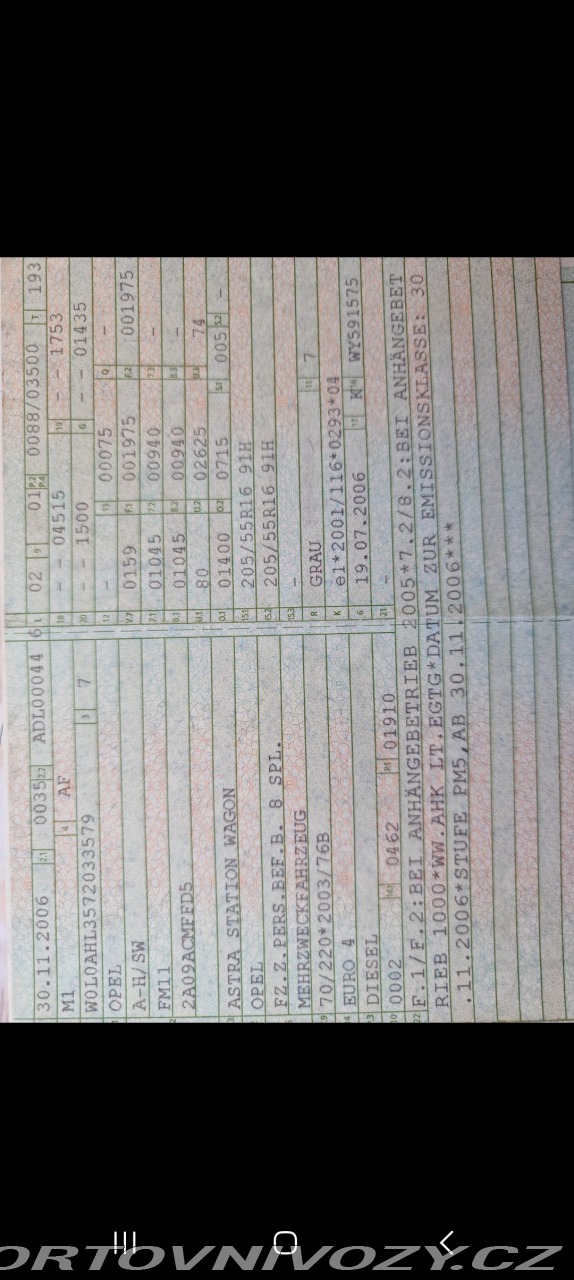 30.11.2006 2.1 0035 2.2 ADL00044 6
M1 4 AF
W0L0AHL3572033579 3 7
OPEL
A-H/SW
FM11
2A09ACMFFD5
ASTRA STATION WAGON
OPEL
FZ.Z.PERS.BEF.B. 8 SPL.
MEHRZWECKFAHRZEUG
70/220*2003/76B
EURO 4
DIESEL
0002 0462 P.1 01910
L 02 9 01 P.2 P.4 0088/03500 T 193
18 - - 04515 19 - - 1753
20 - - 1500 G - - 01435
12 - 13 00075 Q -
V.7 0159 F.1 001975 F.2 001975
7.1 01045 7.2 00940 7.3 -
8.1 01045 8.2 00940 8.3 -
U.1 80 U.2 02625 U.3 74
O.1 01400 O.2 0715 S.1 005 S.2 -
15.1 205/55R16 91H
15.2 205/55R16 91H
15.3 -
R GRAU 11 7
K e1*2001/116*0293*04
6 19.07.2006 17 K 16 WY591575
21 -
22 F.1/F.2:BEI ANHÄNGEBETRIEB 2005*7.2/8.2:BEI ANHÄNGEBET
RIEB 1000*WW.AHK LT.EGTG*DATUM ZUR EMISSIONSKLASSE: 30
.11.2006*STUFE PM5,AB 30.11.2006***
ORTOVNIVOZY.CZ